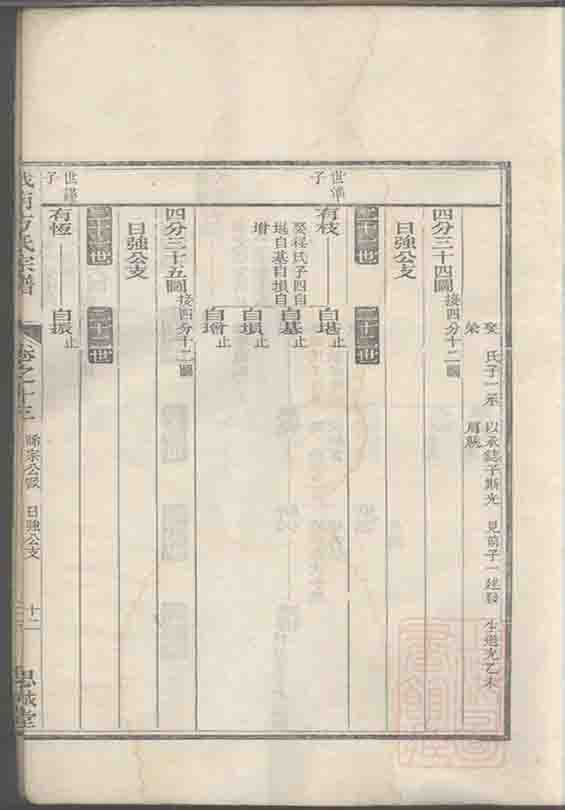 娶 氏子一承
榮
以承鋕子斯光 見前子一建發 生道光乙未
四分三十四圖接四分十二圖
日強公支
三十一世 三十二世
世準子
有枝 自堪止
娶程氏子四自
堪自基自塤自
增
自基止
自塤止
自增止
四分三十五圖接四分十二圖
日強公支
三十一世 三十二世
世準子
有恆 自振止
方氏宗譜 卷之十三 縣宗公派 日強公支 十二 思誠堂